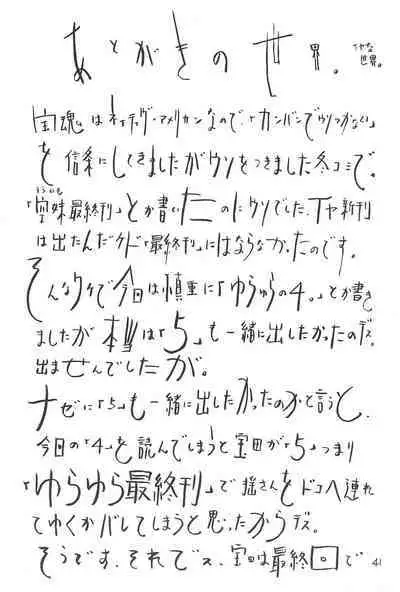 あとがきの世界。
つかな世界。
宝魂はネイティヴ・アメリカンなので、「カンバンでウソつかない」
を信条にしてきましたがウソをつきました冬コミで。
「空妹最終刊」とか書いたのにウソでした。イヤ新刊
は出たんだケド「最終刊」にはならなかったのです。
そんなワケで今回は慎重に「ゆらゆらの4。」とか書き
ましたが本当は「5」も一緒に出したかったのデス。
出ませんでしたが。
ナゼに「5」も一緒に出したかったのかと言うと、
今回の「4」を読んでしまうと宝田が「5」つまり
「ゆらゆら最終刊」で揺さんをドコへ連れ
てゆくかバレてしまうと思ったからデス。
そうです、それでス、宝田は最終回で
41